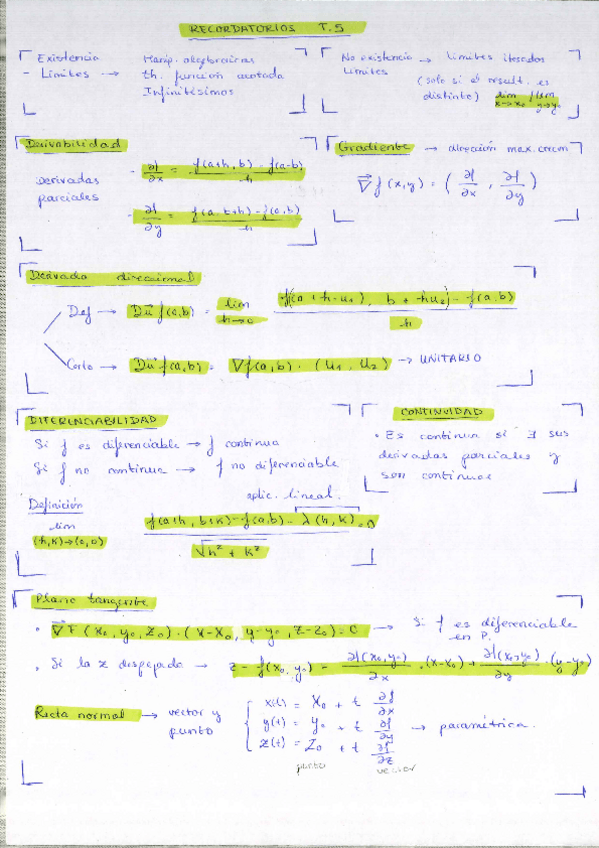 RECORDATORIOS T.5
Existencia
- Límites → Manip. algebraicas
th. función acotada
Infinitésimos
No existencia → límites iterados
límites (solo si el result. es
distinto) lim x→x₀ lim y→y₀
Derivabilidad
derivadas
parciales
- ∂f/∂x = f(a+h, b) - f(a-b) / h
- ∂f/∂y = f(a. b+h) - f(a, b) / h
Gradiente → dirección max. crecim
∇f (x,y) = ( ∂f/∂x , ∂f/∂y )
Derivada direccional
Def → Dū f(a,b) = lim h→0 f(a+h·u₁), b + hu₂) - f(a,b) / h
Corto → Dū f(a,b) = ∇f(a,b) · (u₁, u₂) → UNITARIO
DIFERENCIABILIDAD
Si f es diferenciable → f continua
Si f no continua → f no diferenciable
Definición
aplic. lineal.
lim (h,k)→(0,0) f(a+h, b+k) - f(a,b) - λ(h,k) / √h² + k² = 0
CONTINUIDAD
• Es continua si ∃ sus
derivadas parciales y
son continuas
Plano tangente
• ∇F (x₀, y₀, z₀) · (x-x₀, y-y₀, z-z₀) = 0 → Si f es diferenciable
en P.
• Si la z despejada → z - f(x₀, y₀) = ∂f(x₀,y₀)/∂x · (x-x₀) + ∂f(x₀,y₀)/∂y · (y-y₀)
Recta normal → vector y
punto
x(t) = x₀ + t ∂f/∂x
y(t) = y₀ + t ∂f/∂y → paramétrica.
z(t) = z₀ + t ∂f/∂z
punto vector